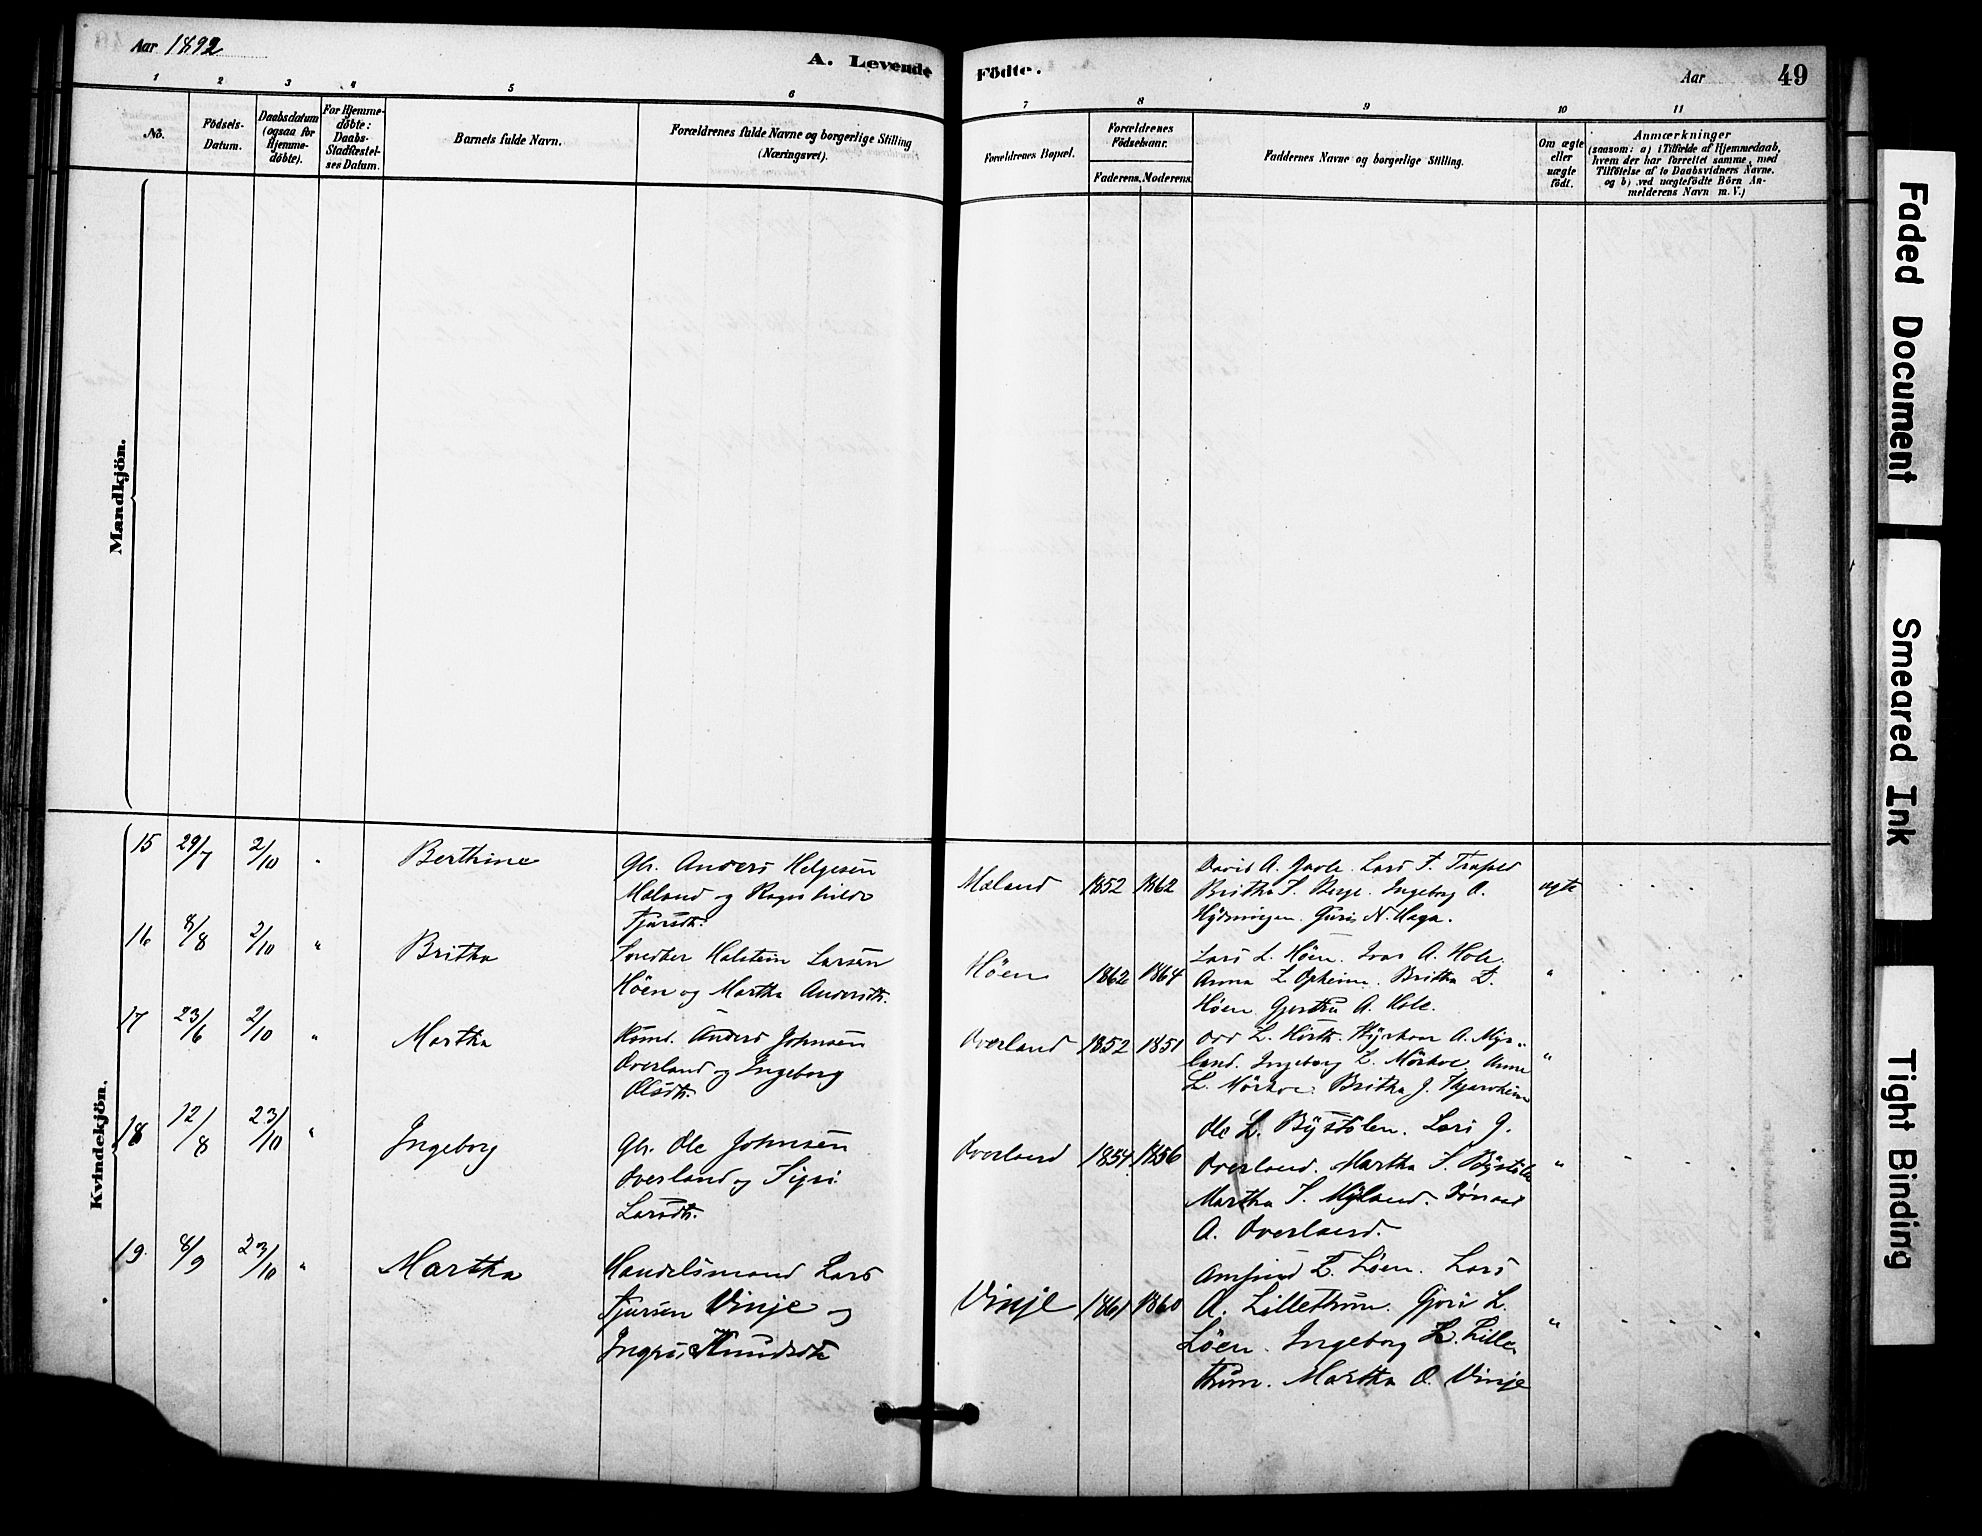 Aar 1892
A. Levende Födte.
Aar
49
1 2 3 4 5 6 7 8 9 10 11
No.
Födsels-
Datum.
Daabsdatum
(ogsaa for
Hjemme-
døbte).
For Hjemme-
døbte:
Daabs-
Stadfæstel-
ses Datum.
Barnets fulde Navn.
Forældrenes fulde Navne og borgerlige Stilling
(Næringsvei).
Forældrenes Bopæl.
Forældrenes
Födselsaar.
Faderens. Moderens.
Faddernes Navne og borgerlige Stilling.
Om ægte
eller
uægte
født.
Anmærkninger
(saasom: a) i Tilfælde af Hjemmedaab,
hvem der har forrettet samme, med
Tilföielse af to Daabsvidners Navne.
og b) ved uægtefödte Börn An-
melderens Navn m. V.)
Mandkjön.
Kvindekjön.
15 29/7 2/10 Berthine
Gbr. Anders Helgesen
Mæland og Ragnhilde
Tjursdtr.
Mæland 1852 1862
David A. Lars T.
Britha S. Berge. Ingeborg O.
Guri N. Haga.
ægte
16 8/8 2/10 " Britha
Holstein Larsen
Høen og Martha Andersdtr.
Høen 1862 1864
Lars L. Høen. Ivar A. Hole.
Anna L. Opheim. Britha L.
Høen. Gjertru A. Hole.
"
17 23/6 2/10 " Martha
Anders Johnsen
Overland og Ingeborg
Olsdtr.
Overland 1852 1851
L. A. Myr-
land. Ingeborg L. Mørkve. Anna
L. Mørkve. Britha J.
"
18 12/8 23/10 " Ingeborg
Gbr. Ole Johnsen
Overland og Sigri
Larsdtr.
Overland 1854 1856
Ole L. Bystølen. Lars J.
Overland. Martha S. Bystølen
Martha S.
A. Overland.
"
19. 8/9 23/10 " Martha
Handelsmand Lars
Tjursen Vinje og
Knudsdtr
Vinje 1861 1860
Amfind L. Løen. Lars
A. Lillethun. Guri L.
Løen. Ingeborg L. Lille
thun. Martha O. Vinje
"
Faded Document
Smeared Ink
Tight Binding